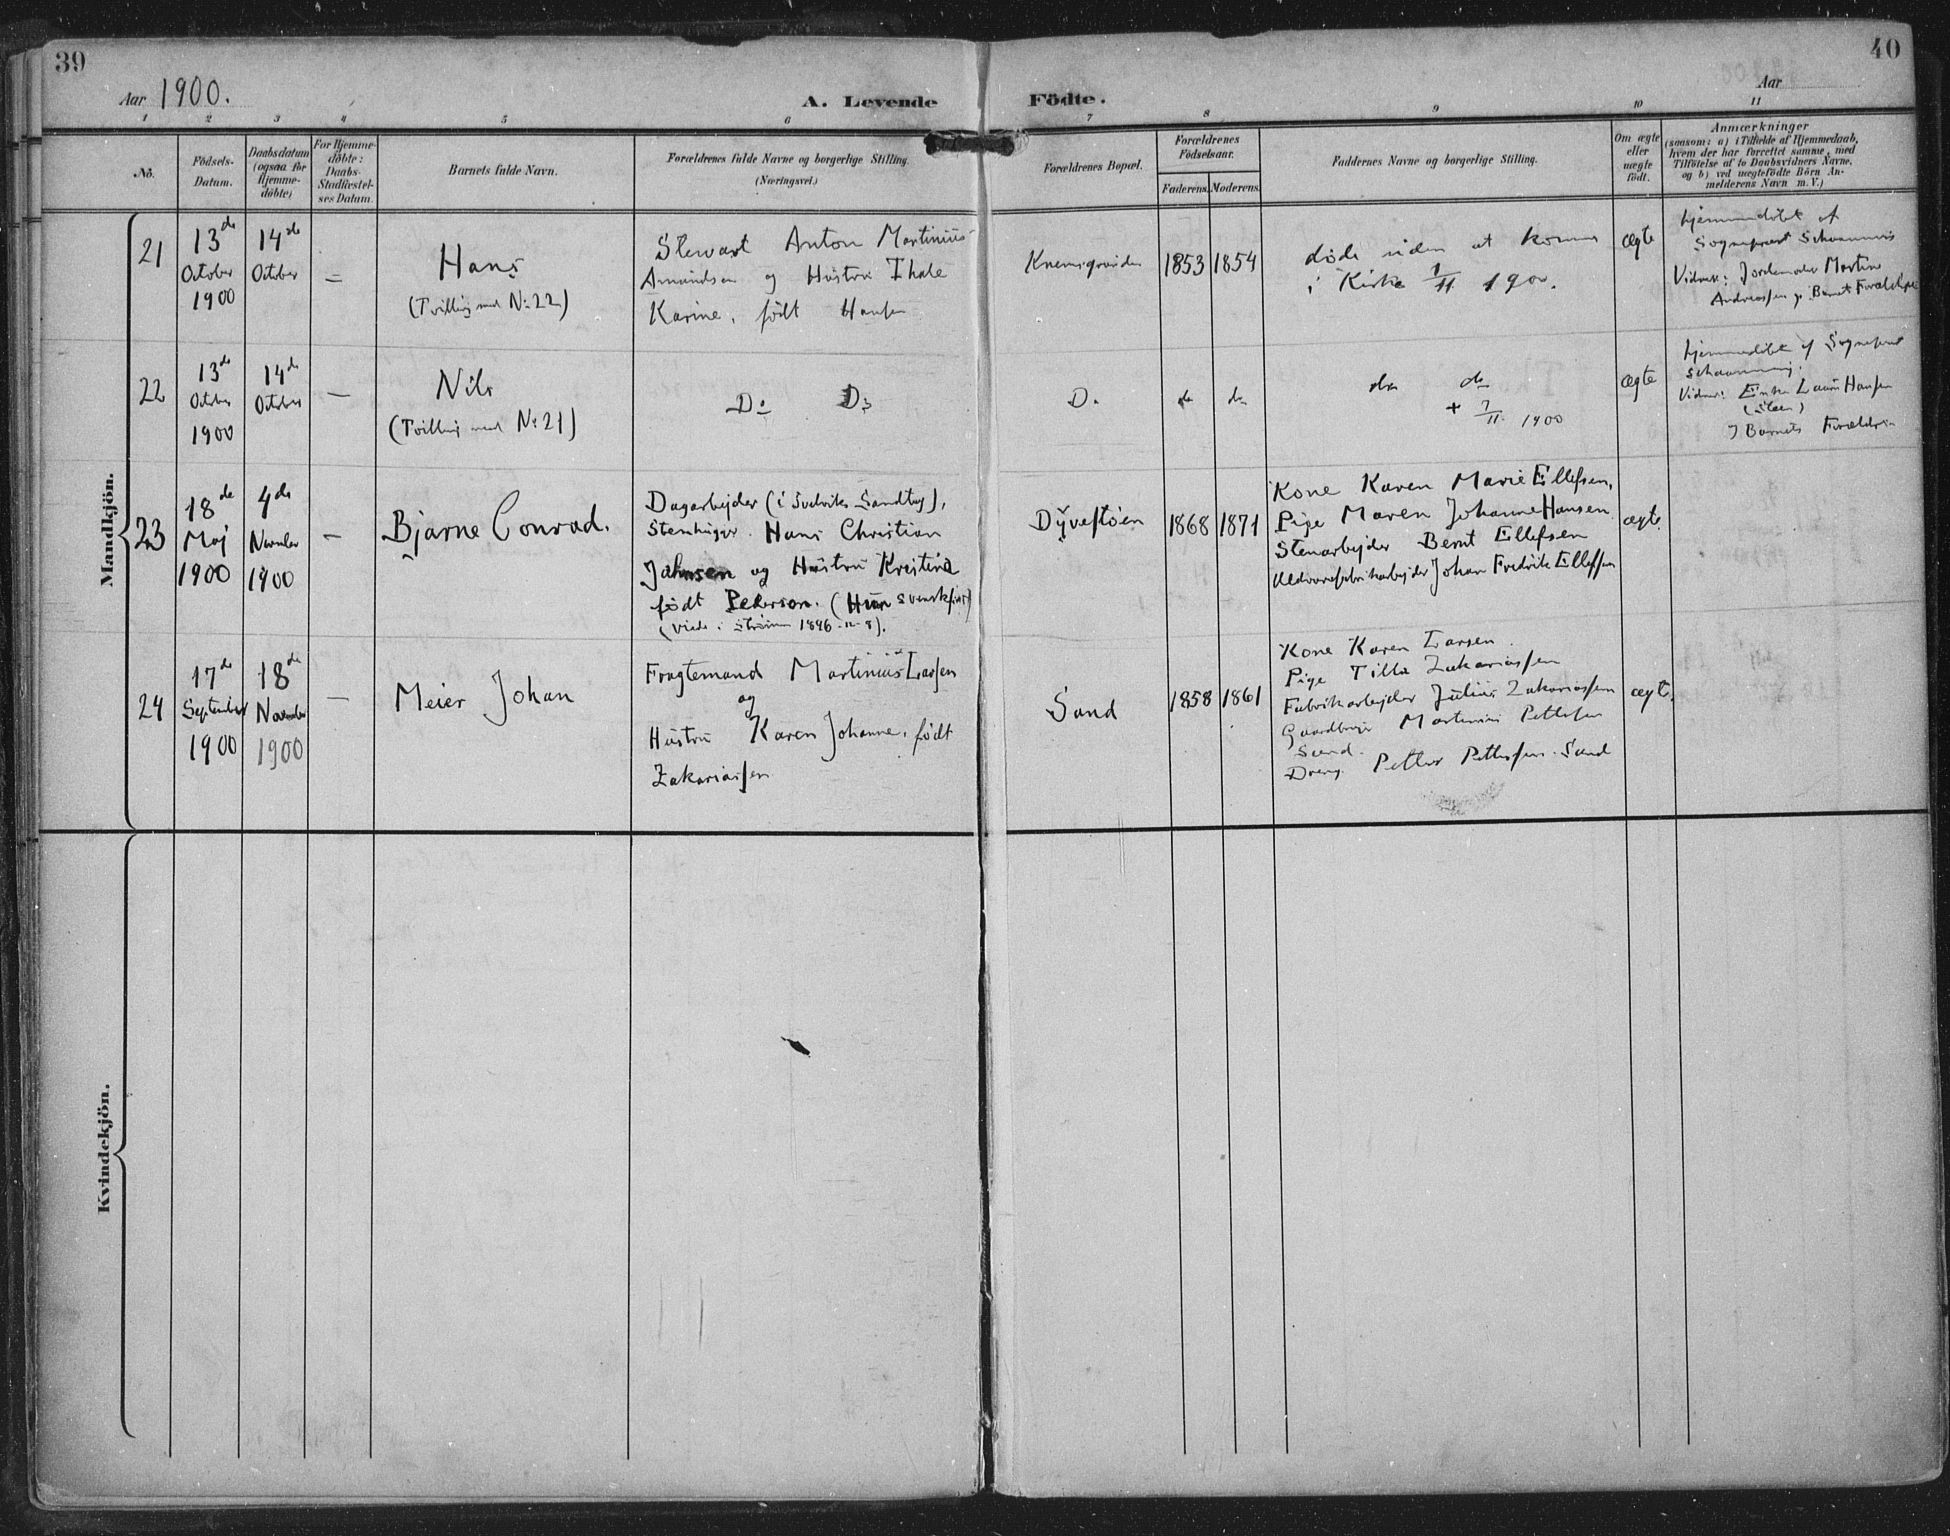 39
40
Aar 1900.
A. Levende Födte.
Aar
1 2 3 4 5 6 7 8 9 10 11
No.
Födsels-
Datum.
Daabsdatum
(ogsaa for
Hjemme-
döbte)
For Hjemme-
döbte:
Daabs-
Stadfæstel-
ses Datum.
Barnets fulde Navn.
Forældrenes fulde Navne og borgerlige Stilling.
(Næringsvei.)
Forældrenes Bopæl.
Forældrenes
Födselsaar.
Faderens. Moderens.
Faddernes Navne og borgerlige Stilling.
Om ægte
eller
uægte
födt.
Anmærkninger
(saasom: a) i Tilfælde af Hjemmedaab,
hvem der har forrettet samme, med
Tilföielse af to Daabsvidners Navne.
og b) ved uægtefödte Börn An-
melderens Navn m. V.)
Mandkjön.
21
13de
October
1900
14de
October
–
Hans
(Tvilling med No 22)
Stewart Anton Martinius
Amundsen og Hustru Thale
Karine, født Hansen
1853 1854
døde uden at komme
i Kirke 1/11 1900.
ægte
Hjemmedöbt af
Sognepræst Schaanning
Vidner: Jordemoder Martine
Andreassen og Barnets Forældre
22
13de
October
1900
14de
October
–
Nils
(Tvilling med No 21)
Do Do
Do
do do
do do
+ 7/11 1900
ægte
Hjemmedöbt af Sognepræst
Schaanning.
Vidner: Enke Laura Hansen
(Steen)
I Barnets Forældre
23
18de
Maj
1900
4de
November
1900
–
Bjarne Conrad.
Dagarbejder (i Svelviks Sandtag),
Stenhugger Hans Christian
Jahnsen og Hustru Kristina
født Pederson. (Hun svenskfødt)
(viede i Strømm 1896-12-8).
Dyvestøen
1868 1871
Kone Karen Marie Ellefsen,
Pige Maren Johanne Hansen
Stenarbejder Bernt Ellefsen
Uldvarefabrikarbejder Johan Fredrik Ellefsen
ægte.
24
17de
September
1900
18de
November
1900
–
Meier Johan
Fragtemand Martinius Larsen
og
Hustru Karen Johanne, født
Zakariassen
Sand
1858 1861
Kone Karen Larsen.
Pige Tilla Zakariassen
Fabrikarbejder Julius Zakariassen
Gaardbruger Martinius Pettersen
Sand.
Dreng Petter Pettersen Sand
ægte.
Kvindekjön.